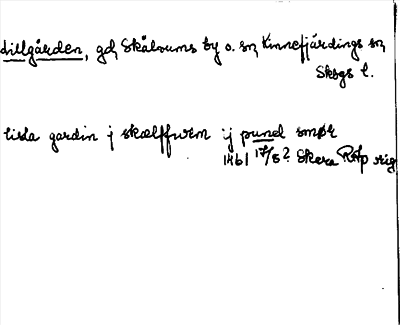 dillgården, gd, Skälvums by o. sn, Kinnefjärdings sn,
Skbgs l.
lisla gardin j skælffwm ij pund smør
1461 17/5? Skara RAp sig